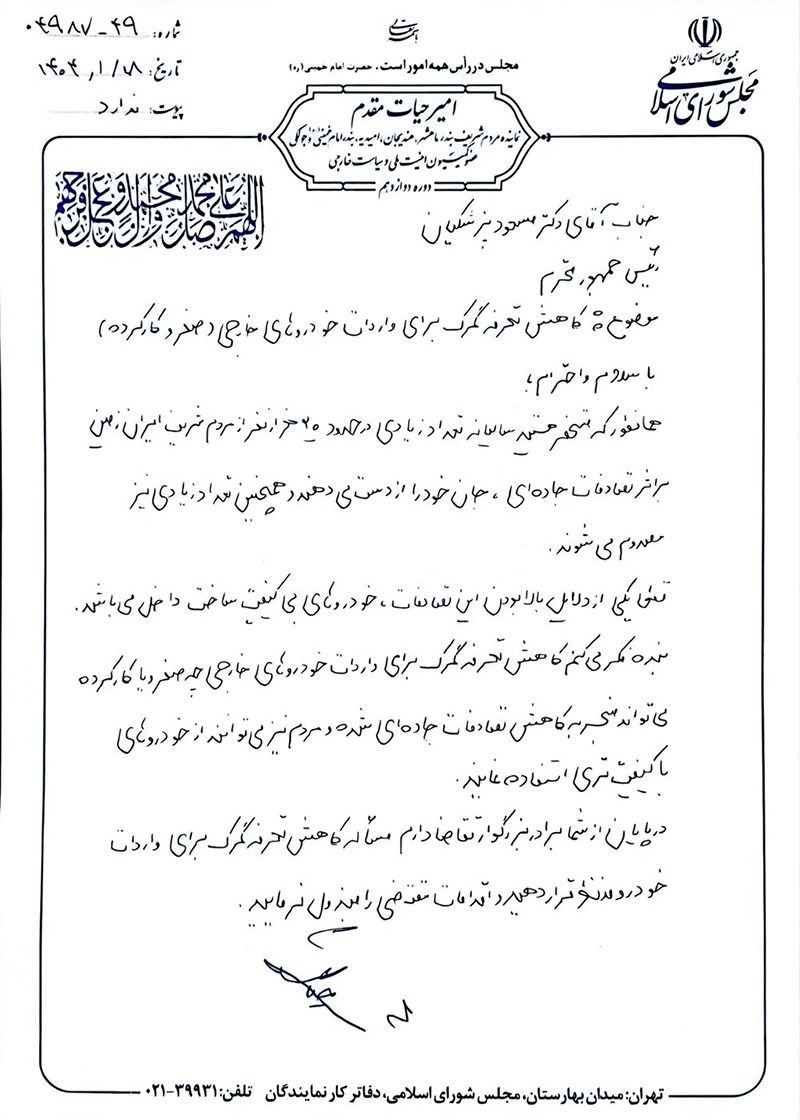 باسمه تعالی
جمهوری اسلامی ایران
مجلس شورای اسلامی
شماره: ۴۹-۰۴۹۸۷
تاریخ: ۱۴۰۴/۱/۱۸
پیوست: ندارد
مجلس در رأس همه امور است. حضرت امام خمینی (ره)
امیر حیات مقدم
نماینده مردم شریف بندر ماهشهر، هندیجان، امیدیه، بندر امام خمینی و جولکی
عضو کمیسیون امنیت ملی و سیاست خارجی
دوره دوازدهم
اللهم صل علی محمد و آل محمد و عجل فرجهم
جناب آقای دکتر مسعود پزشکیان
رئیس جمهور محترم
موضوع: کاهش تعرفه گمرک برای واردات خودروهای خارجی (صفر و کارکرده)
با سلام و احترام؛
همانطور که مستحضر هستین سالیانه تعداد زیادی در حدود ۲۰ هزار نفر از مردم شریف ایران زمین
بر اثر تصادفات جاده‌ای، جان خود را از دست می دهند و همچنین تعداد زیادی نیز
مصدوم می شوند.
قطعا یکی از دلایل بالا بودن این تصادفات، خودروهای بی کیفیت ساخت داخل می باشد.
بنده فکر می کنم کاهش تعرفه گمرک برای واردات خودروهای خارجی چه صفر و یا کارکرده
می تواند منجر به کاهش تصادفات جاده‌ای شده و مردم نیز می توانند از خودروهای
با کیفیت تری استفاده نمایند.
در پایان از شما برادر بزرگوار تقاضا دارم مسأله کاهش تعرفه گمرک برای واردات
خودرو مدنظر قرار دهید و اقدامات مقتضی را مبذول فرمایید.
تهران: میدان بهارستان، مجلس شورای اسلامی، دفاتر کار نمایندگان تلفن: ۳۹۹۳۱-۰۲۱